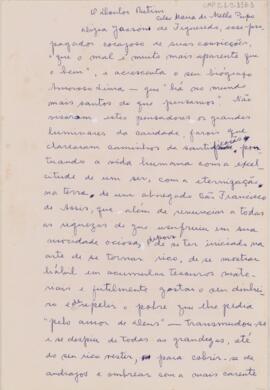 CMP 2.1.2.336-1
O Doutor Autim
Celso Maria de Mello Pupo
Dizia Jackson de Figueiredo, esse pro-
pagador corajoso de suas convicções,
"que o mal é muito mais aparente que
o bem", e acrescenta o seu biógrafo
Amoroso Lima — que "há no mundo
mais santos do que pensamos". Não
visaram estes pensadores os grandes
luminares da caridade, faróis que
clarearam caminhos da santidade, pon-
tuando a vida humana com a excel-
citude de um ser, com a eternização
na terra, de um abnegado São Francisco
de Assis, que além de renunciar a todas
as riquezas de que usufruiu em sua
mocidade ociosa, depois de ter iniciado na
arte de se tornar rico, de se mostrar
hábil em acumular tesouros mate-
riais e futilmente gastar o seu dinhei-
ro e repelir o pobre que lhe pedia
"pelo amor de Deus" — transmudou-se
e se despiu de todas as grandezas, até
do seu rico vestir, para cobrir-se de
andrajos e ombrear com o mais carente